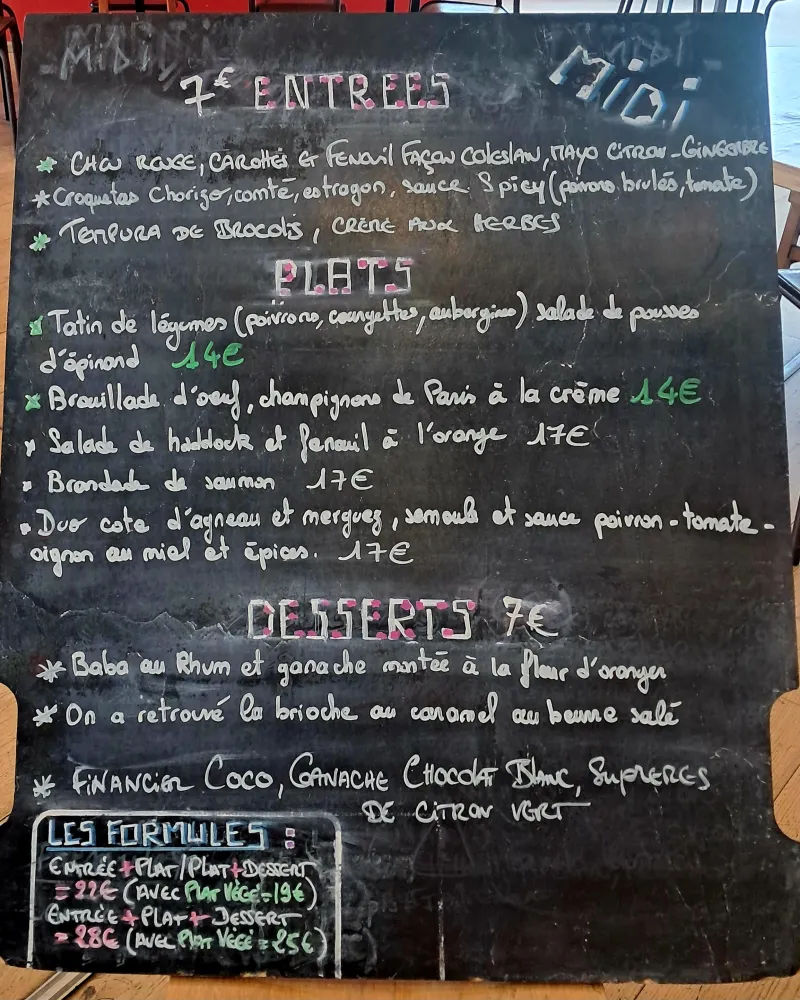 Midi
7€ ENTREES
* CHOU ROUGE, CAROTTES ET FENOUIL FAÇON COLESLAW, MAYO CITRON-GINGEMBRE
* Croquetas Chorizo, comté, estragon, sauce Spicy (poivrons brulés, tomate)
* TEMPURA DE BROCOLIS, CRÈME AUX HERBES
PLATS
* Tatin de légumes (poivrons, courgettes, aubergines) salade de pousses
d'épinard 14€
* Brouillade d'oeuf, champignons de Paris à la crème 14€
* Salade de haddock et fenouil à l'orange 17€
* Brandade de saumon 17€
* Duo cote d'agneau et merguez, semoule et sauce poivron-tomate-
oignon au miel et épices. 17€
DESSERTS 7€
* Baba au Rhum et ganache montée à la fleur d'oranger
* On a retrouvé la brioche au caramel au beurre salé
* FINANCIER COCO, GANACHE CHOCOLAT BLANC, SUPREMES
DE CITRON VERT
LES FORMULES :
ENTRÉE+PLAT/PLAT+DESSERT
= 22€ (AVEC PLAT VÉGÉ=19€)
ENTRÉE+PLAT+DESSERT
= 28€ (AVEC PLAT VÉGÉ = 25€)